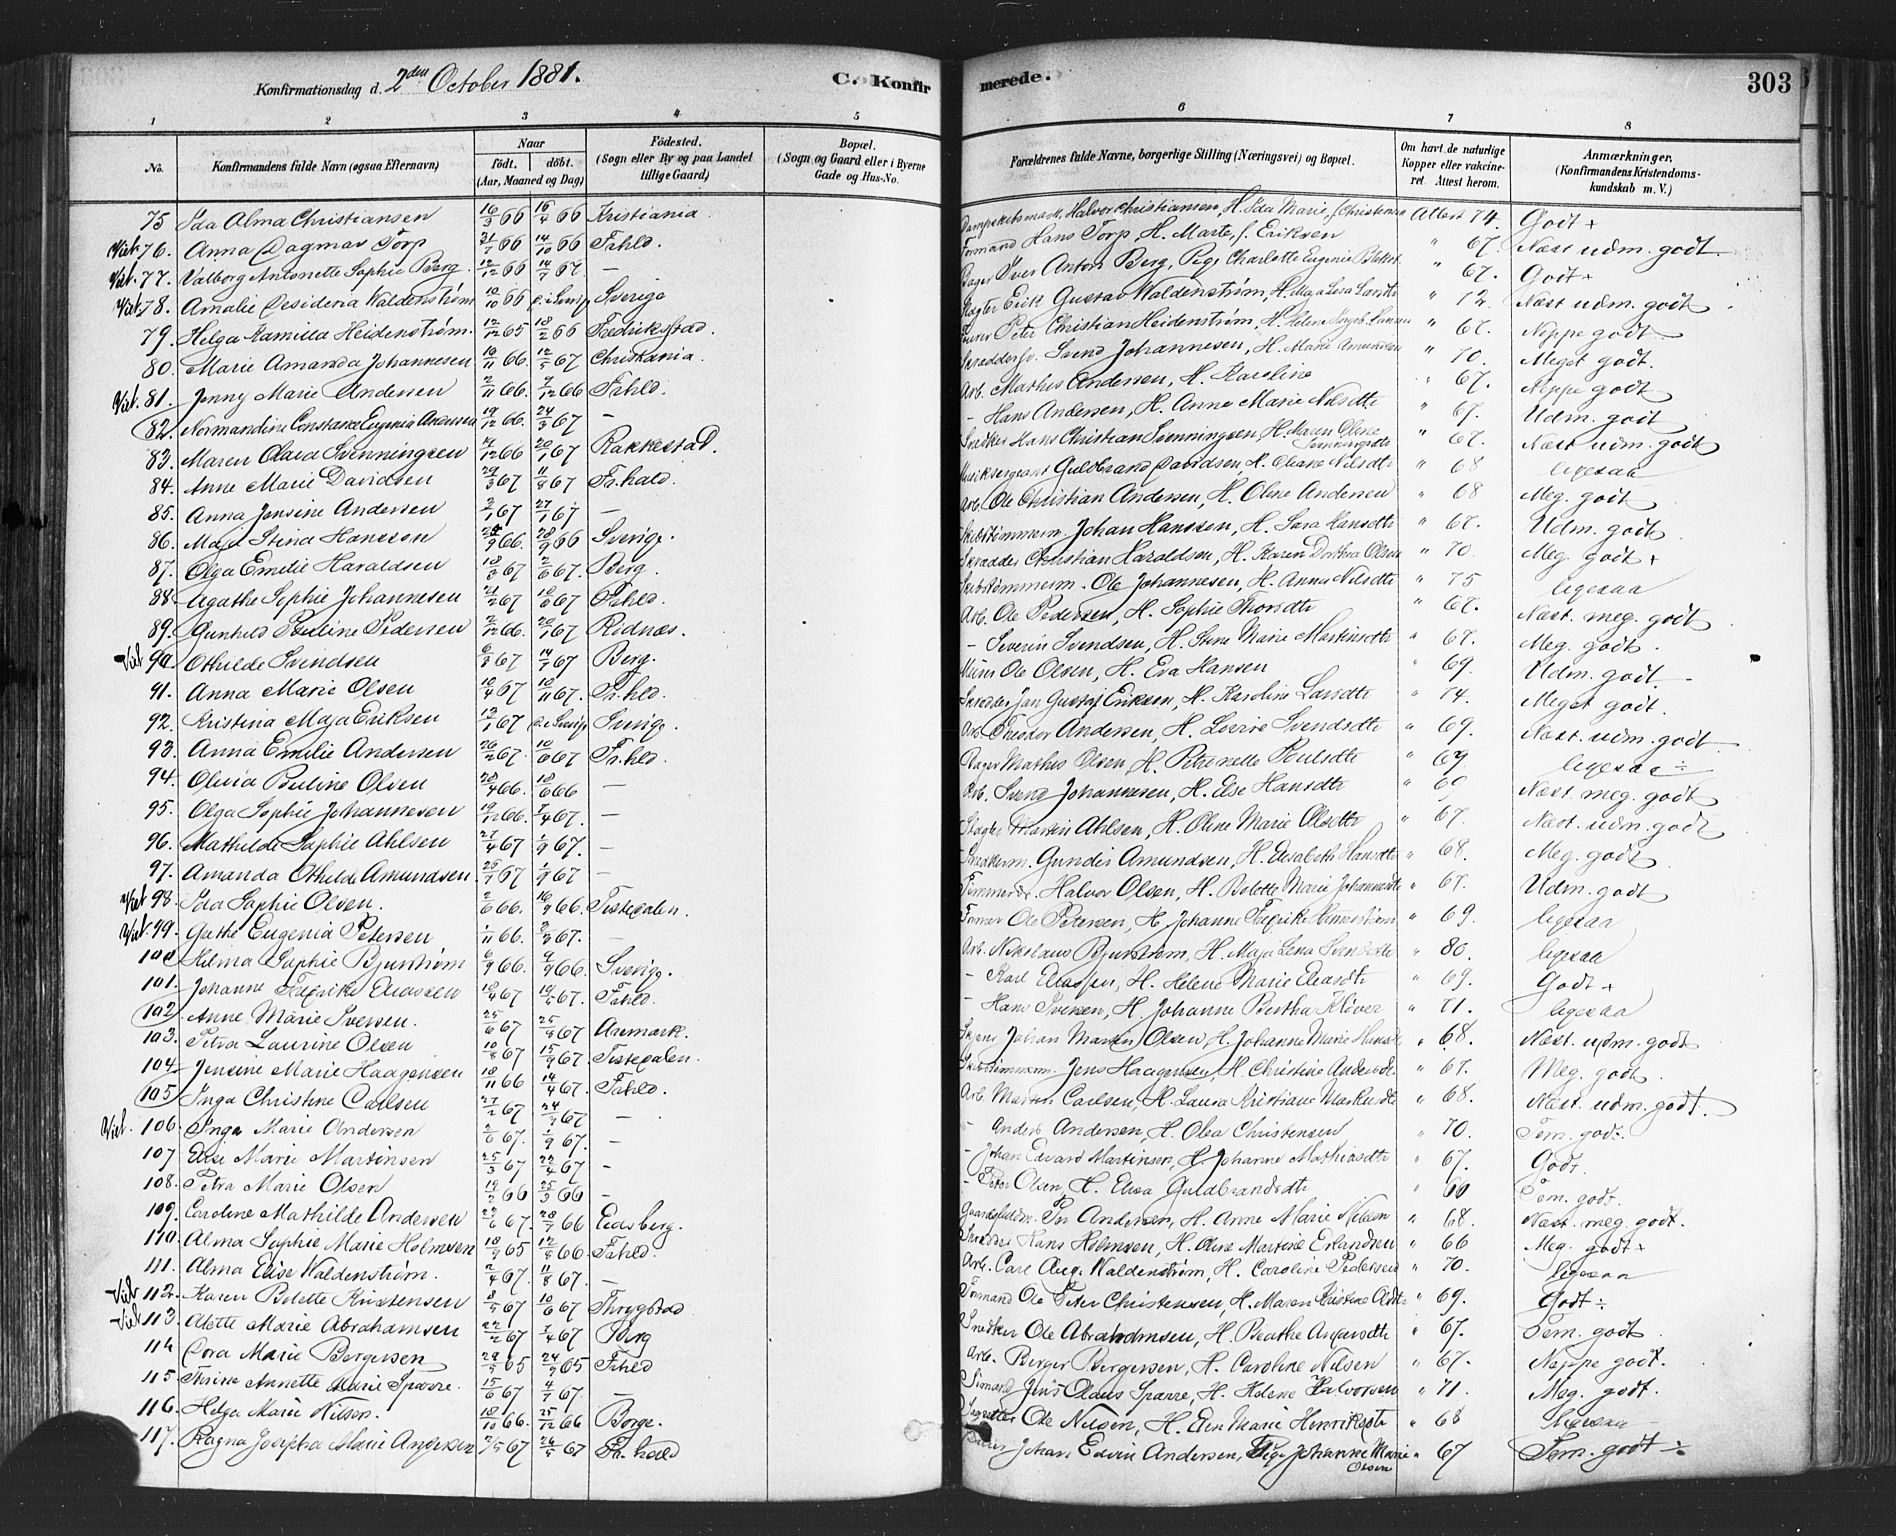 Konfirmationsdag d. 2den October 1881. C. Konfirmerede. 303
1 2 3 4 5 6 7 8
No. Konfirmandens fulde Navn (ogsaa Efternavn) Naar födt. döbt. (Aar, Maaned og Dag) Födested. (Sogn eller By og paa Landet tillige Gaard) Bopæl. (Sogn og Gaard eller i Byerne Gade og Hus-No. Forældrenes fulde Navne, borgerlige Stilling (Næringsvei) og Bopæl. Om havt de naturlige Kopper eller vakcineret. Attest herom. Anmærkninger. (Konfirmandens Kristendomskundskab m. V.)
75 Ida Alma Christiansen 16/3 66 16/4 66 Kristiania Halvor Christiansen, H. Ida Marie, f. Christensen Attest 74. Godt +
Viet. 76. Anna Dagmar Torp 21/7 66 14/10 66 Fr.hld. Formand Hans Torp, H. Marte, f. Eriksen " 67. Næst udm. godt
Viet. 77. Valborg Antonette Sophie Berg 12/12 66 14/7 67 — Bager Iver Anton Berg, Pige Charlotte Eugenie " 67. Godt +
Viet. 78. Amalie Desideria Waldenstrøm 10/10 66 Sverige Slagter Erik Gustav Waldenstrøm, H. Maja Lisa " 72. Næst udm. godt
79. Helga Kamilla Heidenstrøm. 12/12 65 18/2 66 Fredrikstad. Peter Christian Heidenstrøm, H. Helene " 67. Neppe godt
80. Marie Amanda Johannesen 16/11 66. 12/5 67 Christiania. Svend Johannesen, H. Marie Amundsen " 70. Meget godt.
Viet. 81. Jenny Marie Andersen 2/11 66. 2/12 66 Fr.hld. Arb. Mathis Andersen, H. Karoline " 67. Neppe godt
82. Normandine Constance Eugenia Andersen 19/12 66. 24/3 67 — — Hans Andersen, H. Anne Marie Nilsdtr " 67. Udm. godt
83. Maren Olava Svenningsen 14/12 66 20/1 67 Rakkestad. Snedker Hans Christian Svenningsen, H. Maren Oline Svenningsdtr " 67. Næst udm. godt
84. Anne Marie Davidsen 29/3 67 11/8 67 Fr.hald. Guldbrand Davidsen, H. Eliane Nilsdtr " 68 ligesaa
85. Anna Jensine Andersen 2/1 67 27/1 67 — Arb. Ole Christian Andersen, H. Oline Andersen " 68 Meg. godt
86. Maja Stina Hansson 28/9 66 Sverige. Skibstømmerm. Johan Hanssen, H. Sara Hansdtr " 67. Udm. godt
87. Olga Emilie Haraldsen 67 67. Berg. Skrædder Christian Haraldsen, H. Karen Dorthea Olsen " 70. Meg. godt +
88. Agathe Sophie Johannesen 21/2 67 67 Fr.hld. Skibstømmerm. Ole Johannesen, H. Anna Nilsdtr " 75 ligesaa
89. Gunhild Pauline Pedersen 2/12 66. 20/1 67 Ridnæs. Arb. Ole Pedersen, H. Sophie Thorsdtr " 67. Næst. meg. godt
Viet 90. Othilde Svendsen 67 14/7 67 Berg. — Severin Svendsen, H. Stine Marie Martinsdtr " 67. Meg. godt.
91. Anna Marie Olsen 10/4 67 10/11 67. Fr.hld. Ole Olsen, H. Eva Hansen " 69. Udm. godt
92. Kristina Maja Eriksen 12/1 67 Sverige. Skrædder Jan Gustaf Eriksen, H. Karoline Larsdtr " 74. Meget godt.
93. Anna Emilie Andersen 26/2 67 10/6 67 Fr.hld. Arb. Theodor Andersen, H. Lovise Svendsdtr " 69. Næst. udm. godt
94. Olivia Pauline Olsen 28/4 66. 18/6 66 — Bager Mathis Olsen, H. Petronelle Poulsdtr " 69 ligesaa ÷
95. Olga Sophie Johannesen 19/12 66. 7/4 67. — Arb. Svend Johannesen, H. Else Hansdtr " 69 Næst. meg. godt
96. Mathilde Sophie Ahlsen 27/4 67 1/9 67. — Slagter Martin Ahlsen, H. Oline Marie Olsdtr " 67. Næst. udm. godt
97. Amanda Othilde Amundsen 25/7 67 1/9 67 — Gundis Amundsen, H. Elisabeth Hansdtr " 68. Meg. godt
Viet 98. Ida Sophie Olsen. 2/6 66. 16/9 66. Tistedalen. Halvor Olsen, H. Bolette Marie Johannesdtr " 67. Udm. godt
Viet. 99. Gathe Eugenia Petersen 1/11 66. 3/3 67. — Ole Petersen, H. Johanne Fredrikke " 69. ligesaa
100 Hilma Sophie Bjurstrøm 6/9 66. 9/9 66. Sverige. Arb. Nikolaus Bjurstrøm, H. Maja Lena " 80. ligesaa
101. Johanne Fredrikke Eliassen 10/4 67 19/5 67. Fr.hld. — Karl Eliassen, H. Helene Marie Eliasdtr " 69. Godt +
102. Anne Marie Iversen. 25/6 67 25/8 67 Aremark. — Hans Iversen, H. Johanne Bertha Kløver " 71. ligesaa
103. Petra Laurine Olsen 10/8 67 15/9 67. Tistedalen. Johan Martin Olsen, H. Johanne Marie " 68. Næst. udm. godt
104. Jensine Marie Haagensen 18/11 66 14/4 67. Fr.hld. Skibstømmerm. Jens Haagensen, H. Christine Andersdtr " 67. Meg. godt.
105. Inga Christine Carlsen 27/2 67 24/ 67 — Arb. Martin Carlsen, H. Laura Kristiane Markusdtr " 68. Næst. udm. godt.
Viet. 106. Inga Marie Andersen 2/6 67. 1/9 67. — — Anders Andersen, H. Olea Christensen " 70. Tem. godt.
107. Elise Marie Martinsen 25/3 67 22/4 67 — — Johan Edvard Martinsen, H. Johanne Mathiasdtr " 67. Godt.
108. Petra Marie Olsen 19/2 66 25/3 66 — — Peter Olsen, H. Elisa Guldbrandsdtr " 66 Tem. godt.
109. Caroline Mathilde Andersen 67. 28/7 66 Eidsberg. Per Andersen, H. Anne Marie Nilsen " 68. Næst. meg. godt.
110. Alma Sophie Marie Holmsen 18/9 65 12/8 66. Fr.hld. Skrædder Hans Holmsen, H. Oline Martine Erlandsen " 66 Meg. godt +
111. Alma Elise Waldenstrøm. 2/4 67. 11/8 67. — Arb. Carl Aug. Waldenstrøm, H. Caroline Pedersen " 70. ligesaa
Viet 112. Karen Bolette Kristensen 8/5 67 10/6 67 Thrygstad Formand Ole Peter Christensen, H. Maren Kristine " 69. Godt ÷
Viet 113. Alette Marie Abrahamsen 22/2 67 7/4 67 Berg Snedker Ole Abrahamsen, H. Beathe " 67. Tem. godt
114 Cora Marie Bergersen 65 24/9 65 Fr.hld Arb. Berger Bergersen, H. Caroline Nilsen " 67. Neppe godt.
115. Annette Marie Sparre. 15/6 67 4/7 67. — Formand Jens Olaus Sparre, H. Helene Halvorsen " 71. Meg. godt.
116. Helga Marie Nilsen. 18/10 66. 25/12 66 Borge. Ole Nilsen, H. Elen Marie Henriksdtr " 68 ligesaa —
117. Ragna Josepha Marie Andersen 2/5 67 26/5 67 Fr.hald Johan Edvin Andersen, Pige Johanne Marie Olsen " 67 Tem. godt ÷